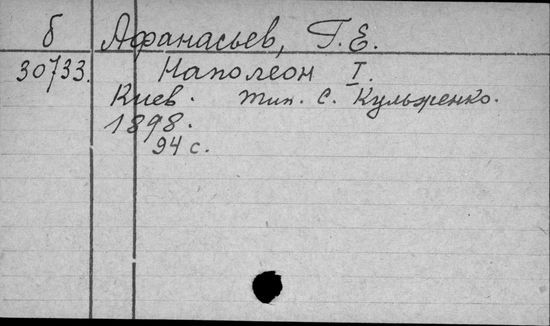 б Афанасьев, Г. Е.
30733. Наполеон I.
Киев. тип. С. Кульженко.
1898.
94 с.